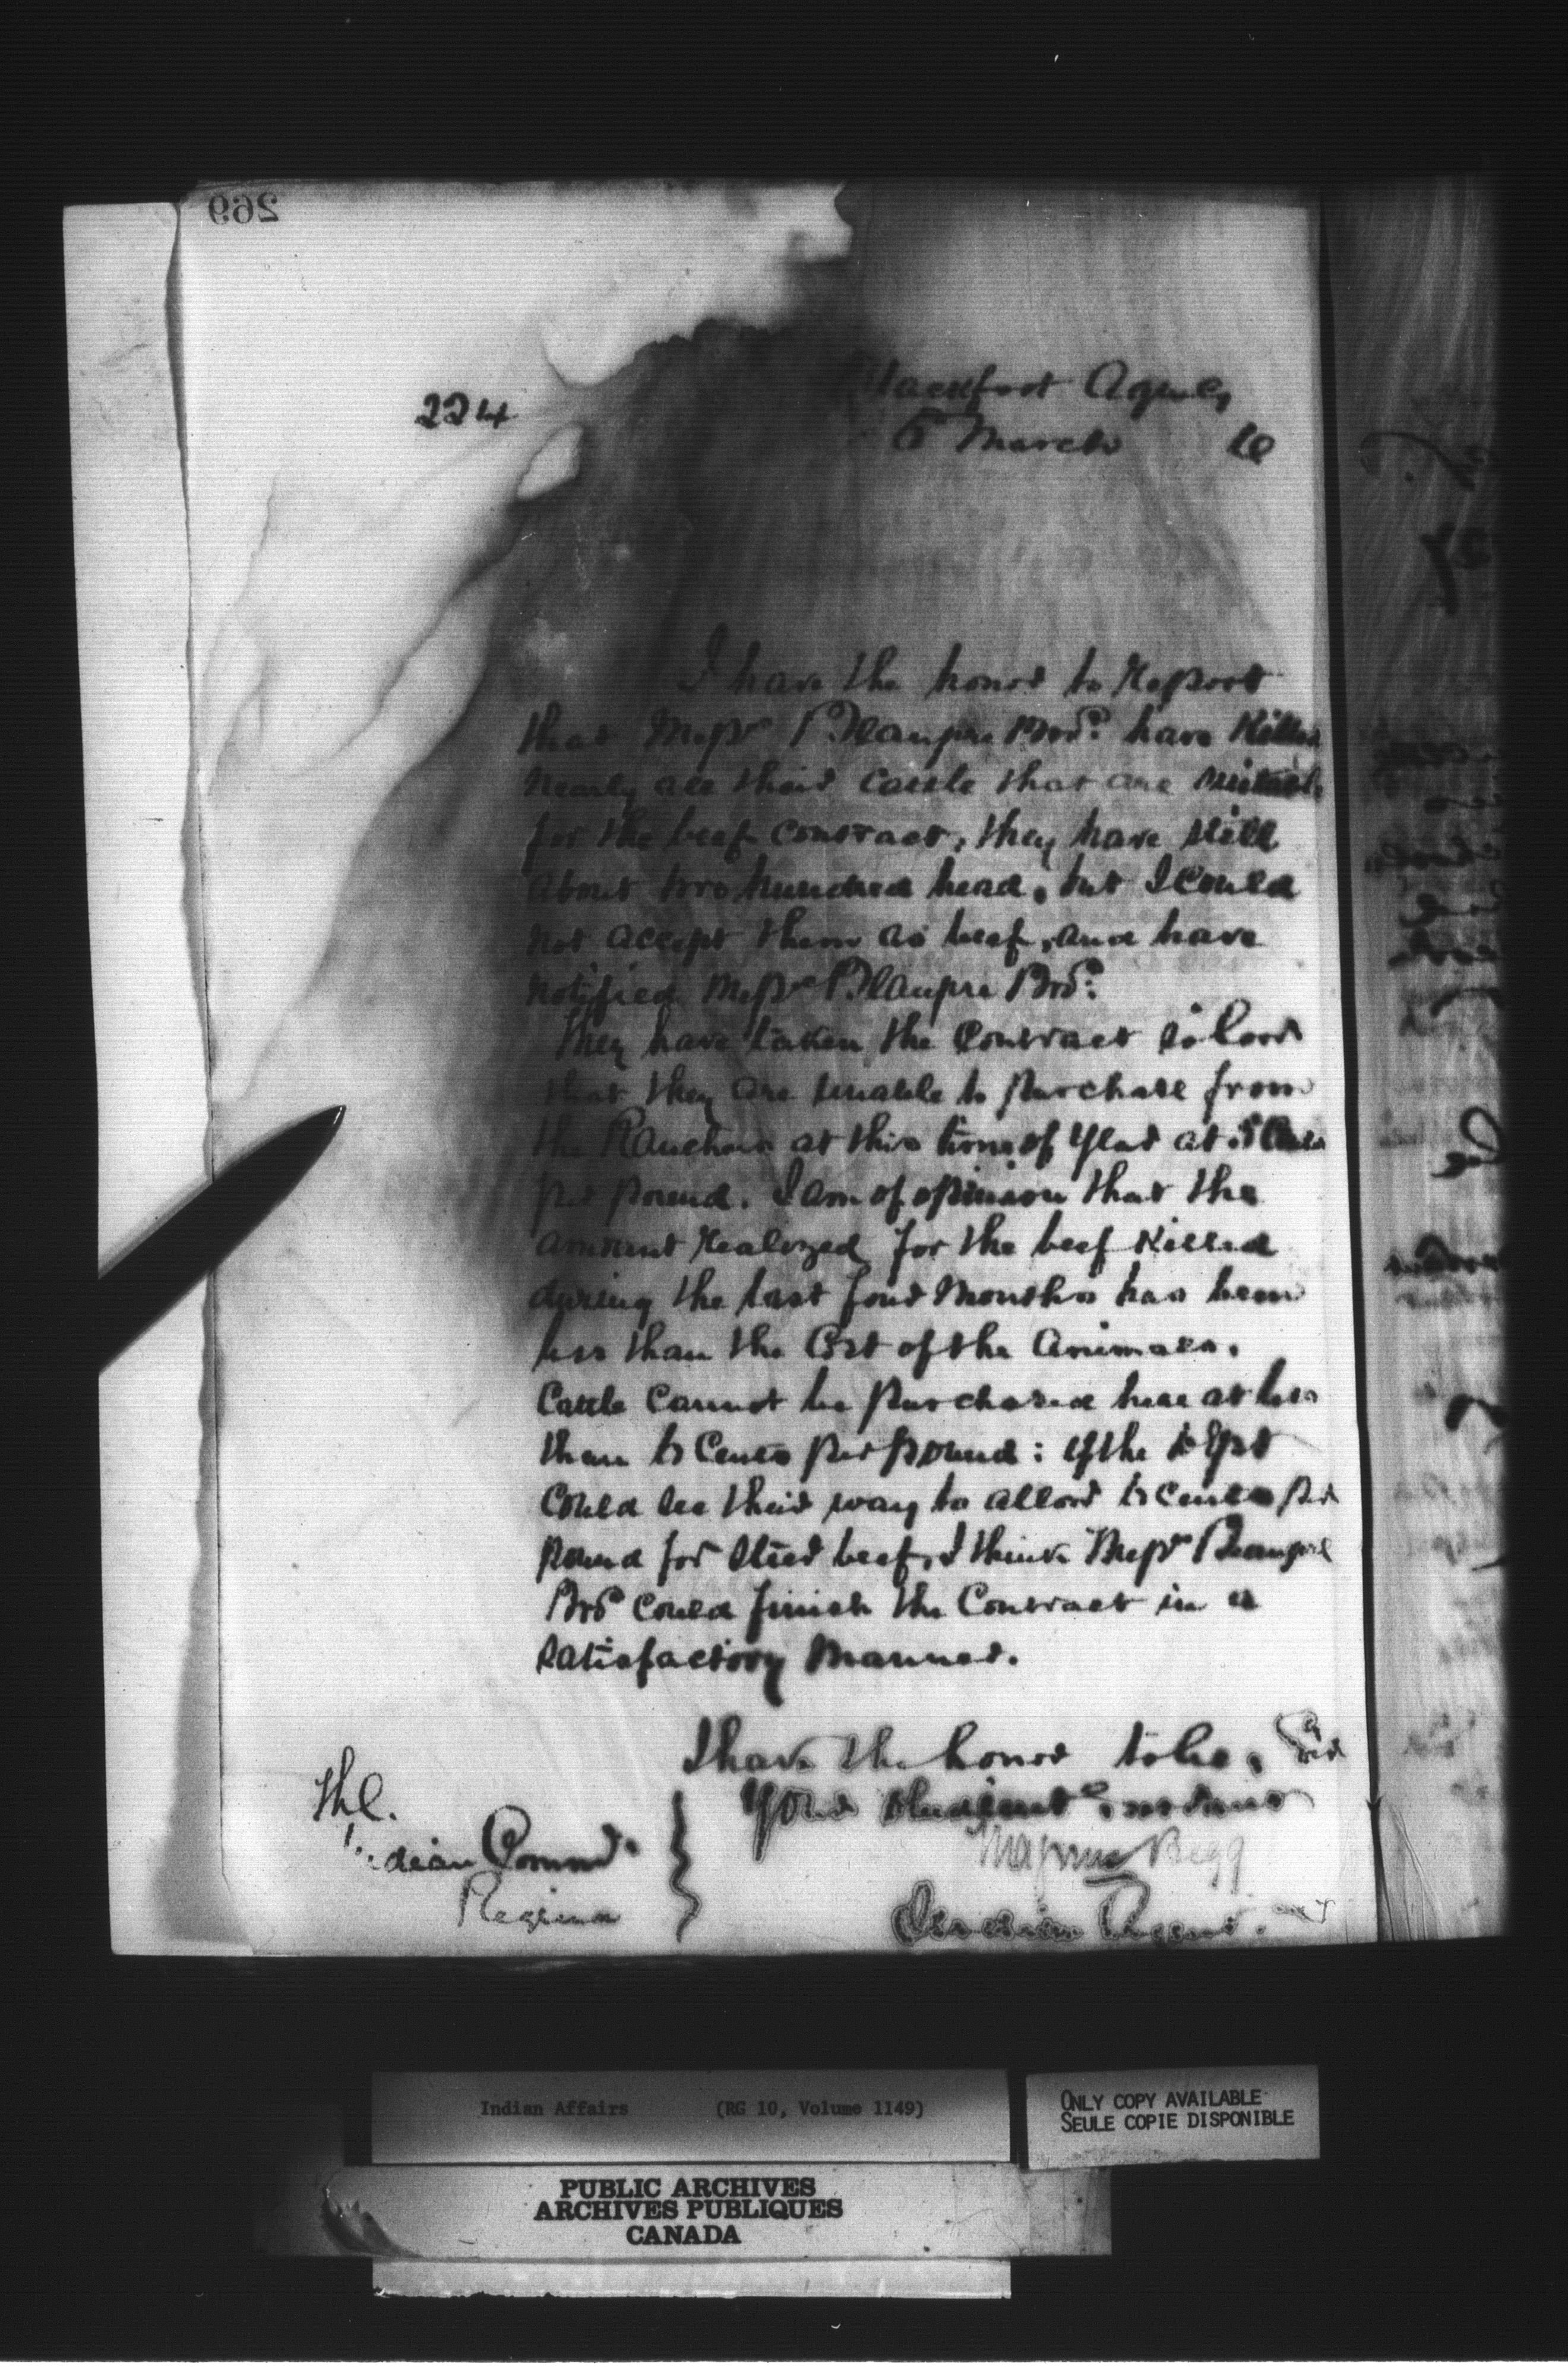 269
224
Blackfoot Agency
6 March
I have the honor to Report
that Messrs Beaupre Bros. have Killed
nearly all their Cattle that are suitable
for the beef contract, they have still
about two hundred head, but I could
not accept them as beef, and have
notified Messrs Beaupre Bros.
They have taken the Contract so low
that they are unable to purchase from
the Ranchers at this time of year at
per pound. I am of opinion that the
amount realized for the beef killed
during the last four months has been
less than the Cost of the animals.
Cattle cannot be purchased here at less
than Cents per pound: if the Dept
could see their way to allow cents per
pound for steer beef, I think Messrs Beaupre
Bros could finish the Contract in a
satisfactory manner.
I have the honor to be, Sir
Your obedient servant
Magnus Begg
Indian Agent.
The.
Indian Commr
Regina
Indian Affairs (RG 10, Volume 1149)
ONLY COPY AVAILABLE
SEULE COPIE DISPONIBLE
PUBLIC ARCHIVES
ARCHIVES PUBLIQUES
CANADA